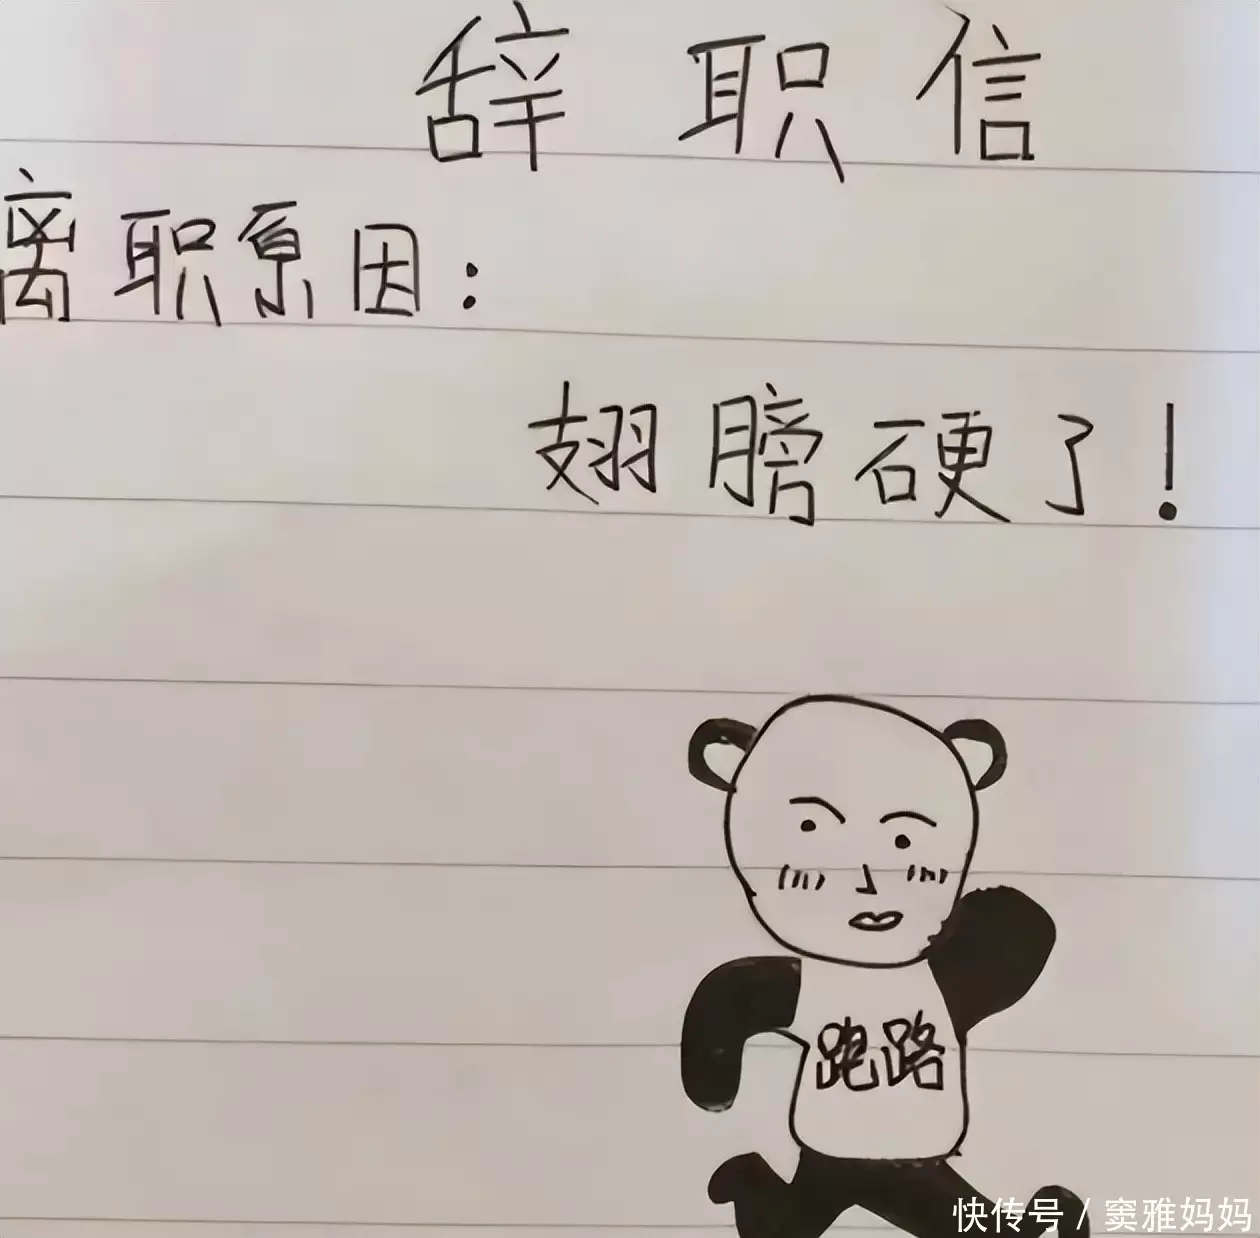 辞职信
离职原因：
翅膀硬了！
跑路
快传号/窦雅妈妈